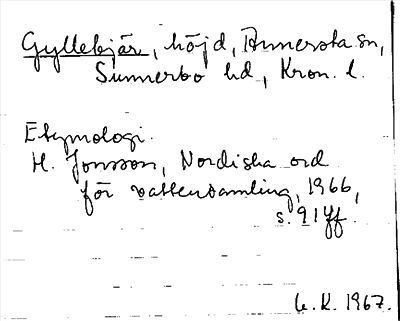 Gyllebjär, höjd, Annersta sn,
Sunnerbo hd, Kron. l.
Etymologi.
H. Jonsson, Nordiska ord
för vattensamling, 1966,
s. 91ff.
L. K. 1967.